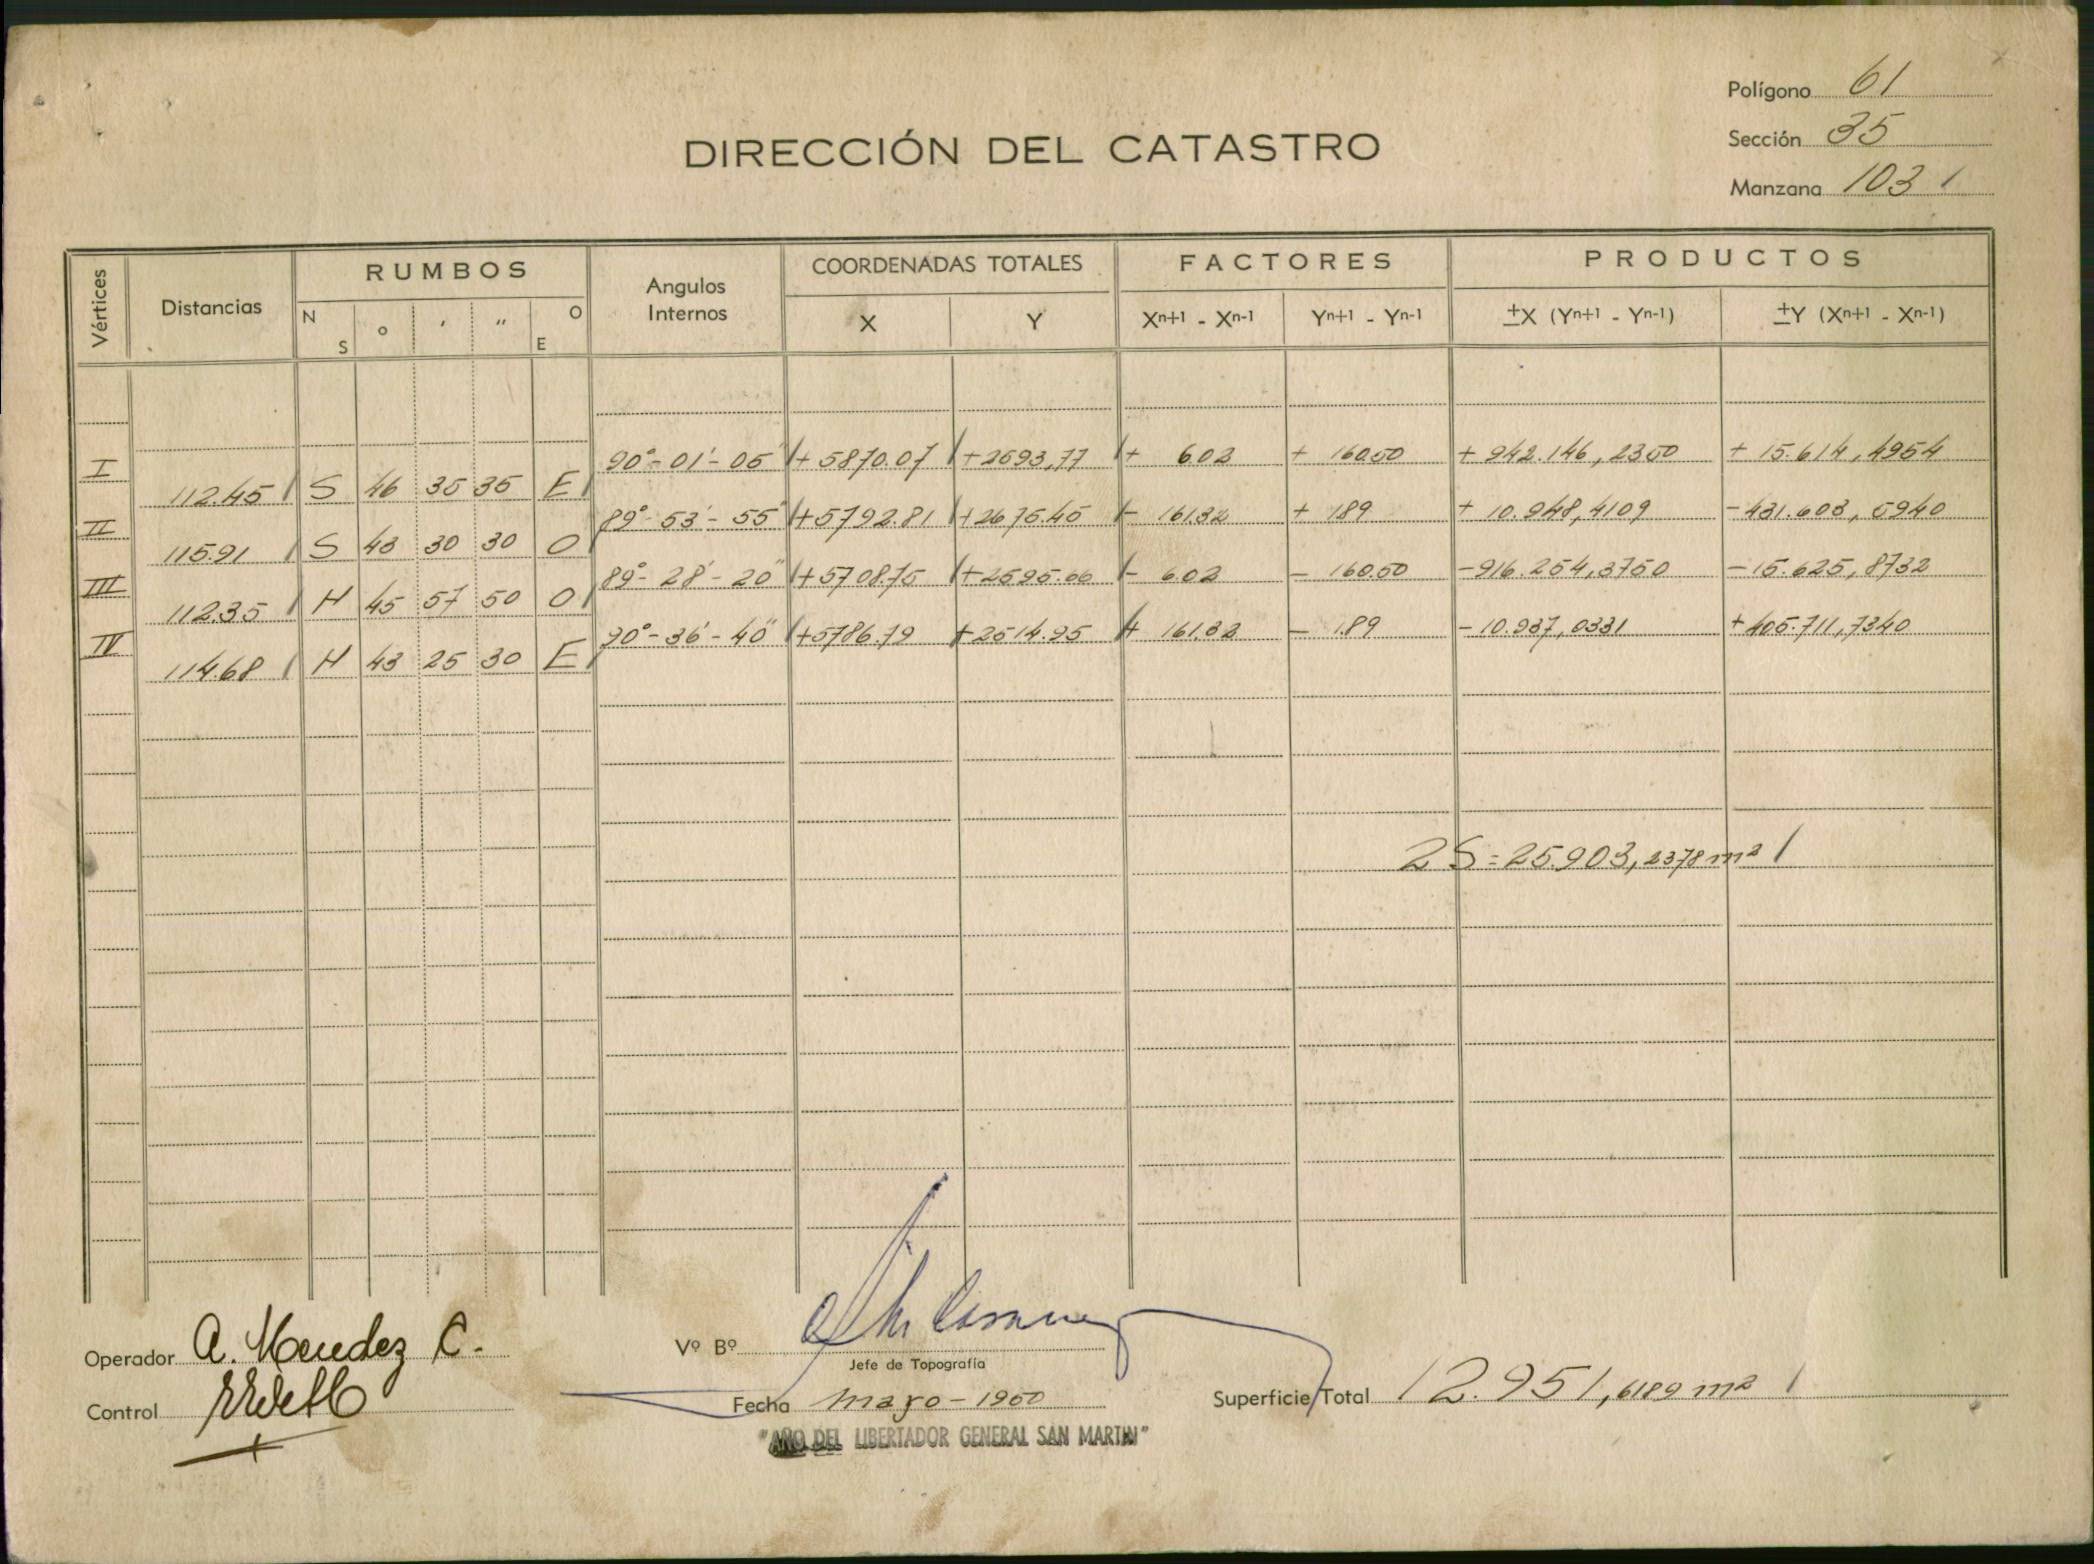 Polígono 61
Sección 35
Manzana 103 /
DIRECCIÓN DEL CATASTRO
Vértices Distancias RUMBOS Angulos Internos COORDENADAS TOTALES FACTORES PRODUCTOS
N S ° ' " O E X Y Xn+1 - Xn-1 Yn+1 - Yn-1 ±X (Yn+1 - Yn-1) ±Y (Xn+1 - Xn-1)
I 90°-01'-05" + 5870.07 + 2593,77 + 6.02 + 160.50 + 942.146,2350 + 15.614,4954
112.45 S 46 35 35 E
II 89°-53'-55" + 5792.81 + 2675.45 - 161.32 + 1.89 + 10.948,4109 - 431.603,5940
115.91 S 43 30 30 O
III 89°-28'-20" + 5708.75 + 2595.66 - 6.02 - 160.50 - 916.254,3750 - 15.625,8732
112.35 N 45 57 50 O
IV 90°-36'-40" + 5786.79 + 2514.95 + 161.32 - 1.89 - 10.937,0331 + 405.711,7340
114.68 N 43 25 30 E
2S = 25.903,2378 m² /
Operador A. Mendez C.
Vº Bº
Jefe de Topografía
Control
Fecha mayo - 1950
Superficie Total 12.951,6189 m² /
"AÑO DEL LIBERTADOR GENERAL SAN MARTIN"